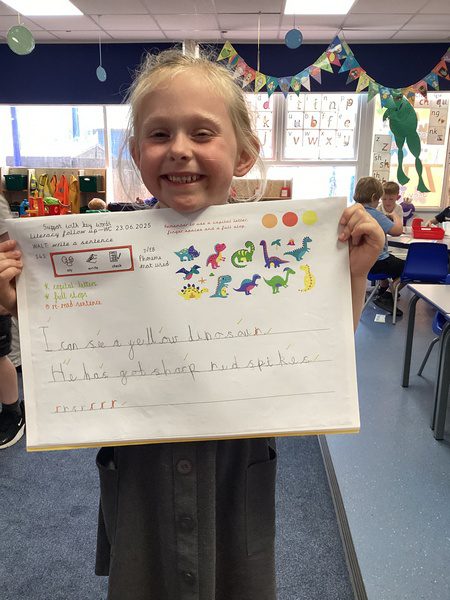 Support with key words
Literacy follow up - 23.06.2025
WALT: write a sentence
Remember to use a capital letter,
finger spaces and a full stop.
say write check
Phonemes
not used
* capital letter
* full stops
re-read sentence
I can see a yellow dinosaur.
He has got sharp red spikes.
rrsrrrr